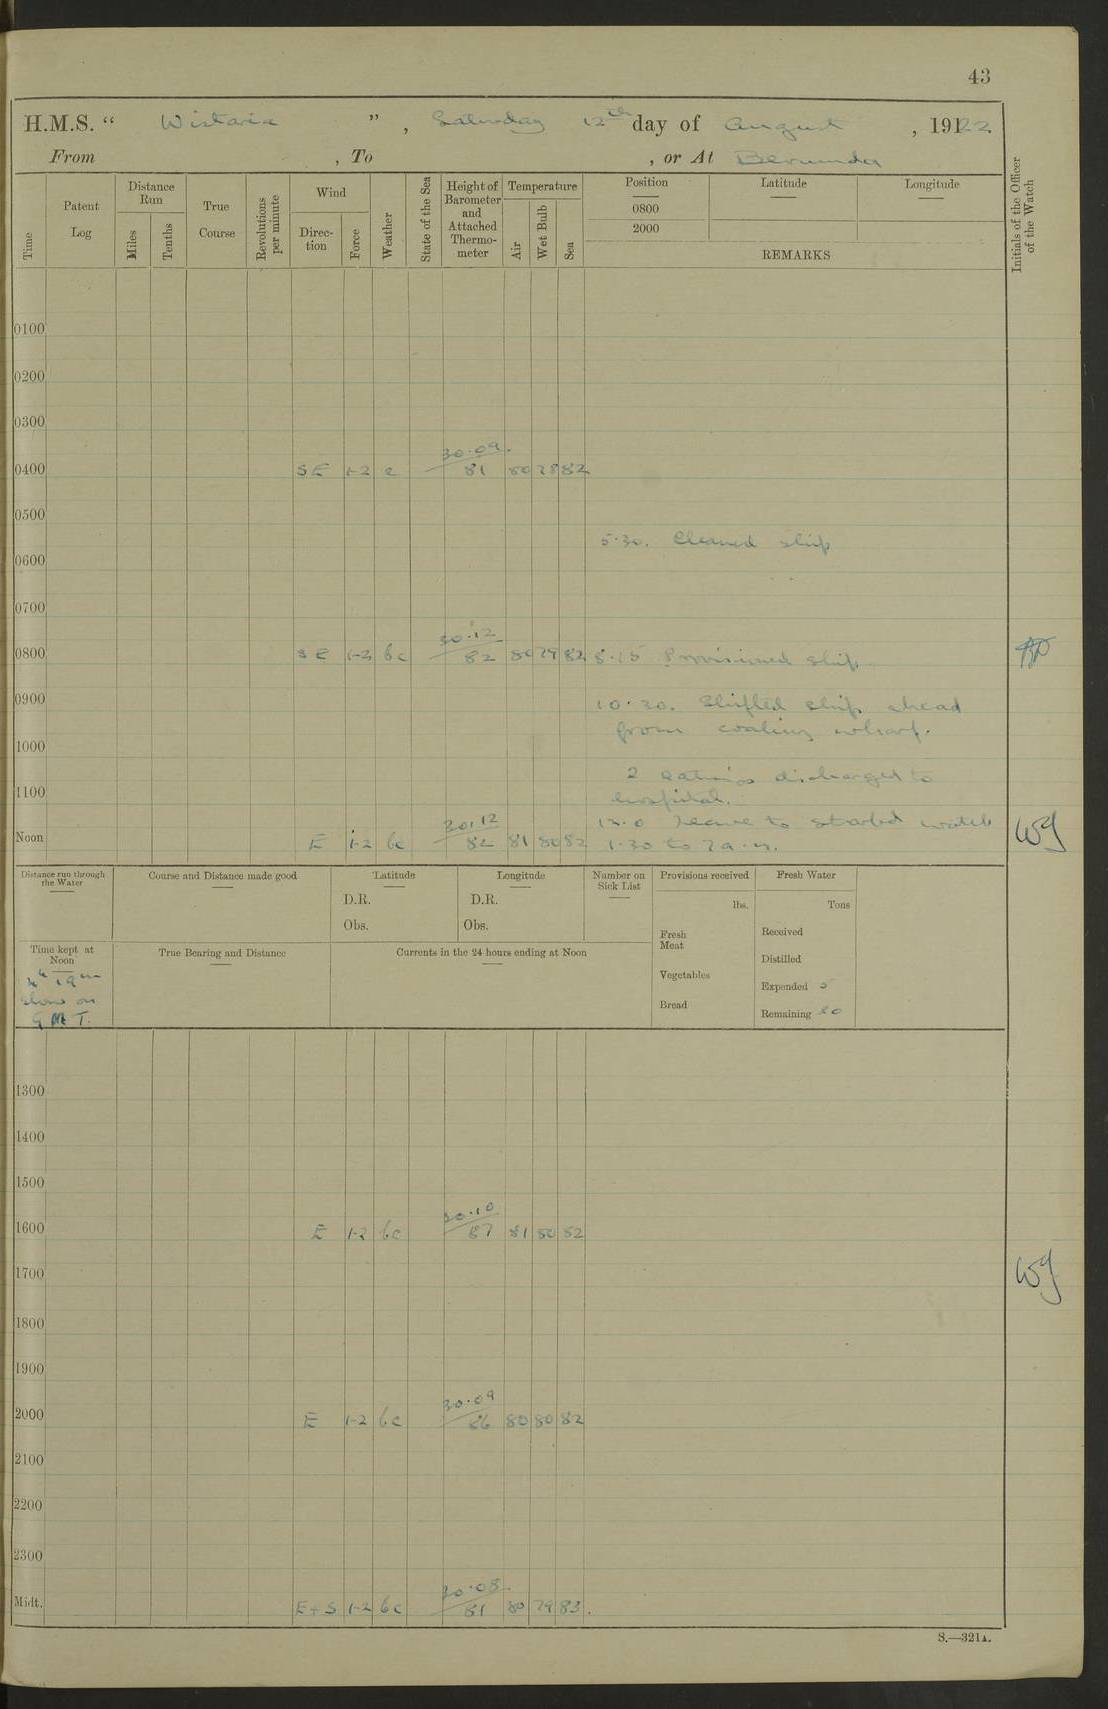 43
H.M.S. “ Wistaria ” , Saturday 12th day of August , 1922
From , To , or At Bermuda
Time
Patent Log
Distance Run
Miles
Tenths
True Course
Revolutions per minute
Wind
Direction
Force
Weather
State of the Sea
Height of Barometer and Attached Thermometer
Temperature
Air
Wet Bulb
Sea
Position Latitude Longitude
0800
2000
REMARKS
Initials of the Officer of the Watch
0100
0200
0300
30.09
0400 SE 1-2 c 81 80 78 82
0500
5.30. Cleaned ship
0600
0700
30.12
0800 SE 1-2 bc 82 80 79 82 8.15 Provisioned ship
0900 10.30. Shifted ship ahead
from coaling wharf.
1000
2 ratings discharged to
1100 hospital.
30.12 Leave to starbd watch
Noon E 1-2 bc 82 81 80 82 1.30 to 7 a.m. WG
Distance run through the Water
Course and Distance made good
Latitude
D.R.
Obs.
Longitude
D.R.
Obs.
Number on Sick List
Provisions received
lbs.
Fresh Meat
Vegetables
Bread
Fresh Water
Tons
Received
Distilled
Expended 5
Remaining 20
Time kept at Noon
4h 19m
slow on
G.M.T.
True Bearing and Distance
Currents in the 24 hours ending at Noon
1300
1400
1500
30.10
1600 E 1-2 bc 87 81 80 82
1700 WG
1800
1900
30.09
2000 E 1-2 bc 86 80 80 82
2100
2200
2300
30.08
Midt. E+S 1-2 bc 81 80 79 83.
S.—321A.